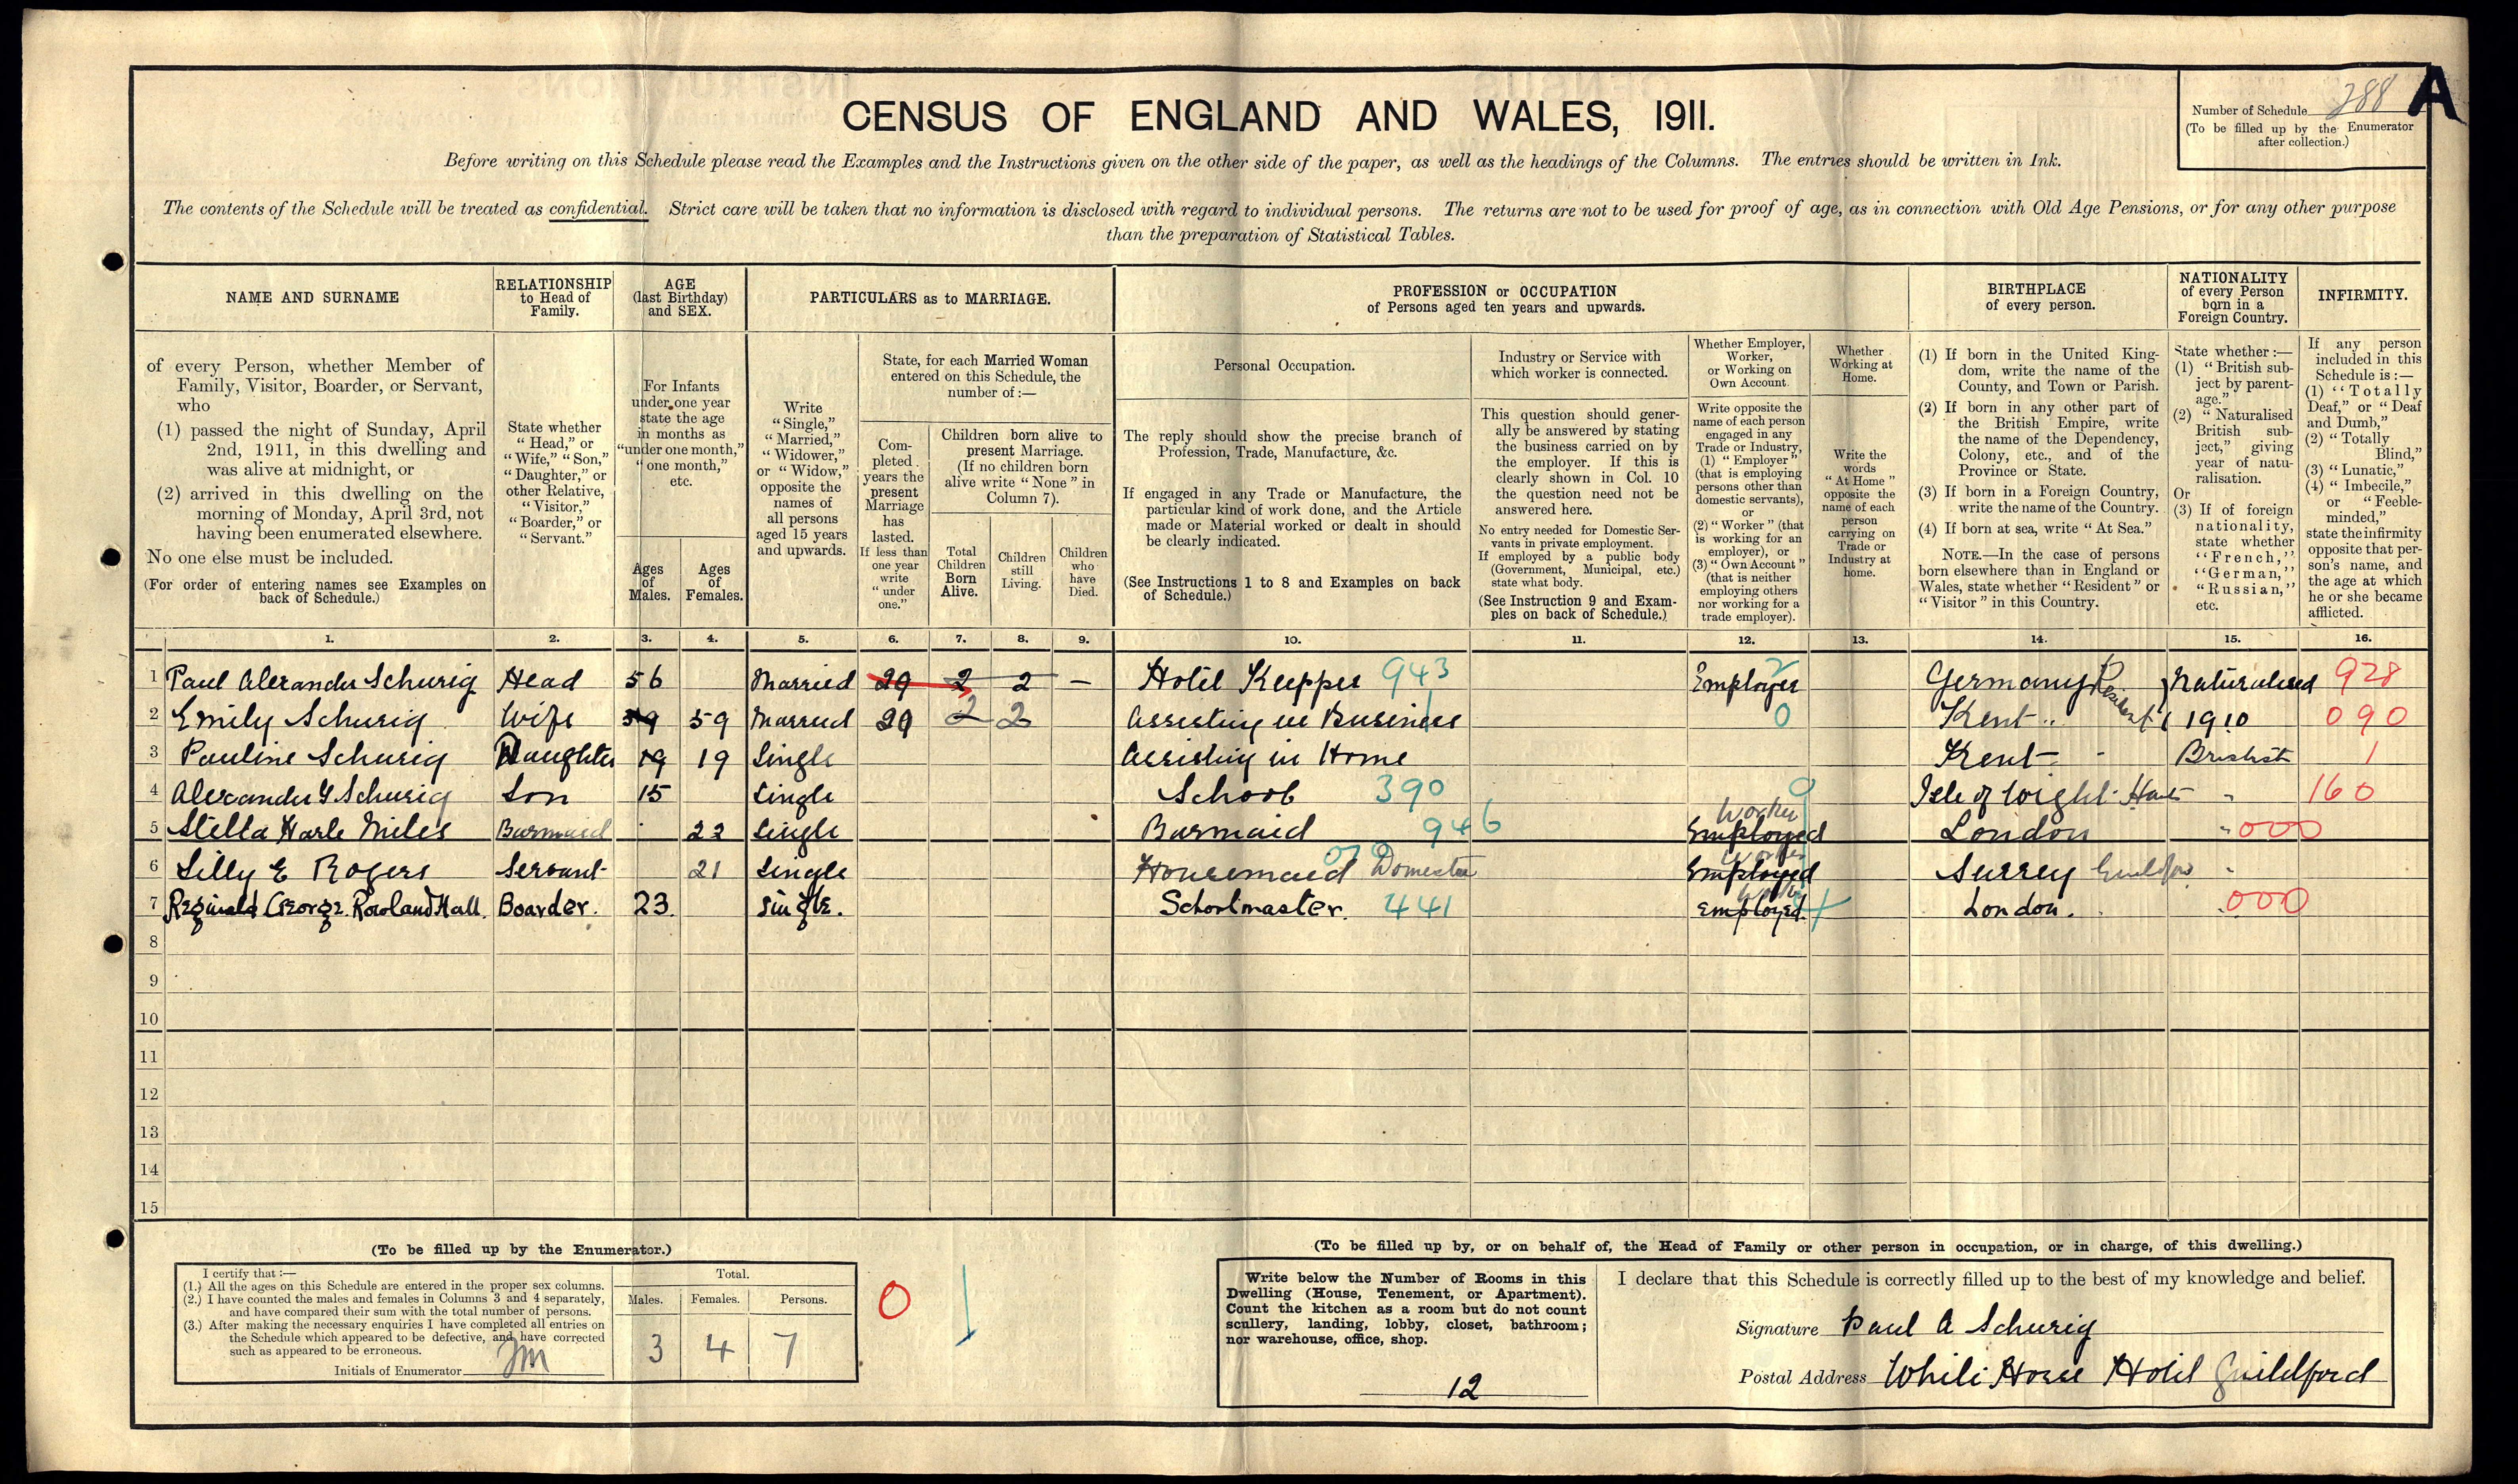 CENSUS OF ENGLAND AND WALES, 1911.
Number of Schedule 288
(To be filled up by the Enumerator
after collection.)
A
Before writing on this Schedule please read the Examples and the Instructions given on the other side of the paper, as well as the headings of the Columns. The entries should be written in Ink.
The contents of the Schedule will be treated as confidential. Strict care will be taken that no information is disclosed with regard to individual persons. The returns are not to be used for proof of age, as in connection with Old Age Pensions, or for any other purpose
than the preparation of Statistical Tables.
NAME AND SURNAME
of every Person, whether Member of
Family, Visitor, Boarder, or Servant,
who
(1) passed the night of Sunday, April
2nd, 1911, in this dwelling and
was alive at midnight, or
(2) arrived in this dwelling on the
morning of Monday, April 3rd, not
having been enumerated elsewhere.
No one else must be included.
(For order of entering names see Examples on
back of Schedule.)
RELATIONSHIP
to Head of
Family.
State whether
"Head," or
"Wife," "Son,"
"Daughter," or
other Relative,
"Visitor,"
"Boarder," or
"Servant."
AGE
(last Birthday)
and SEX.
For Infants
under one year
state the age
in months as
"under one month,"
"one month,"
etc.
Ages
of
Males.
Ages
of
Females.
PARTICULARS as to MARRIAGE.
Write
"Single,"
"Married,"
"Widower,"
or "Widow,"
opposite the
names of
all persons
aged 15 years
and upwards.
State, for each Married Woman
entered on this Schedule, the
number of :—
Com-
pleted
years the
present
Marriage
has
lasted.
If less than
one year
write
"under
one."
Children born alive to
present Marriage.
(If no children born
alive write "None" in
Column 7).
Total
Children
Born
Alive.
Children
still
Living.
Children
who
have
Died.
PROFESSION or OCCUPATION
of Persons aged ten years and upwards.
Personal Occupation.
The reply should show the precise branch of
Profession, Trade, Manufacture, &c.
If engaged in any Trade or Manufacture, the
particular kind of work done, and the Article
made or Material worked or dealt in should
be clearly indicated.
(See Instructions 1 to 8 and Examples on back
of Schedule.)
Industry or Service with
which worker is connected.
This question should gener-
ally be answered by stating
the business carried on by
the employer. If this is
clearly shown in Col. 10
the question need not be
answered here.
No entry needed for Domestic Ser-
vants in private employment.
If employed by a public body
(Government, Municipal, etc.)
state what body.
(See Instruction 9 and Exam-
ples on back of Schedule.)
Whether Employer,
Worker,
or Working on
Own Account.
Write opposite the
name of each person
engaged in any
Trade or Industry,
(1) "Employer"
(that is employing
persons other than
domestic servants),
or
(2) "Worker" (that
is working for an
employer), or
(3) "Own Account"
(that is neither
employing others
nor working for a
trade employer).
Whether
Working at
Home.
Write the
words
"At Home"
opposite the
name of each
person
carrying on
Trade or
Industry at
home.
BIRTHPLACE
of every person.
(1) If born in the United King-
dom, write the name of the
County, and Town or Parish.
(2) If born in any other part of
the British Empire, write
the name of the Dependency,
Colony, etc., and of the
Province or State.
(3) If born in a Foreign Country,
write the name of the Country.
(4) If born at sea, write "At Sea."
NOTE.—In the case of persons
born elsewhere than in England or
Wales, state whether "Resident" or
"Visitor" in this Country.
NATIONALITY
of every Person
born in a
Foreign Country.
State whether :—
(1) "British sub-
ject by parent-
age."
(2) "Naturalised
British sub-
ject," giving
year of natu-
ralisation.
Or
(3) If of foreign
nationality,
state whether
"French,"
"German,"
"Russian,"
etc.
INFIRMITY.
If any person
included in this
Schedule is :—
(1) "Totally
Deaf," or "Deaf
and Dumb,"
(2) "Totally
Blind,"
(3) "Lunatic,"
(4) "Imbecile,"
or "Feeble-
minded,"
state the infirmity
opposite that per-
son's name, and
the age at which
he or she became
afflicted.
1. 2. 3. 4. 5. 6. 7. 8. 9. 10. 11. 12. 13. 14. 15. 16.
1 Paul Alexander Schurig Head 56 Married 29 2 2 — Hotel Keeper 943 Employer 2 Germany Resident Naturalised 928
2 Emily Schurig Wife 59 59 Married 29 2 2 Assisting in Business 1 0 Kent " 1910 090
3 Pauline Schurig Daughter 19 19 Single Assisting in Home Kent British 1
4 Alexander G Schurig Son 15 Single School 390 0 Isle of Wight Hants " 160
5 Stella Harle Miles Barmaid 22 Single Barmaid 946 Worker Employed London " 000
6 Lilly E Rogers Servant 21 Single Housemaid Domestic Worker Employed Surrey Guildford "
7 Reginald George Rowland Hall. Boarder. 23. Single. Schoolmaster. 441 Worker Employed. London. 000
8
9
10
11
12
13
14
15
(To be filled up by the Enumerator.)
I certify that :—
(1.) All the ages on this Schedule are entered in the proper sex columns.
(2.) I have counted the males and females in Columns 3 and 4 separately,
and have compared their sum with the total number of persons.
(3.) After making the necessary enquiries I have completed all entries on
the Schedule which appeared to be defective, and have corrected
such as appeared to be erroneous.
Initials of Enumerator
Total.
Males. Females. Persons.
3 4 7
0 1
(To be filled up by, or on behalf of, the Head of Family or other person in occupation, or in charge, of this dwelling.)
Write below the Number of Rooms in this
Dwelling (House, Tenement, or Apartment).
Count the kitchen as a room but do not count
scullery, landing, lobby, closet, bathroom;
nor warehouse, office, shop.
12
I declare that this Schedule is correctly filled up to the best of my knowledge and belief.
Signature Paul A Schurig
Postal Address White Horse Hotel Guildford